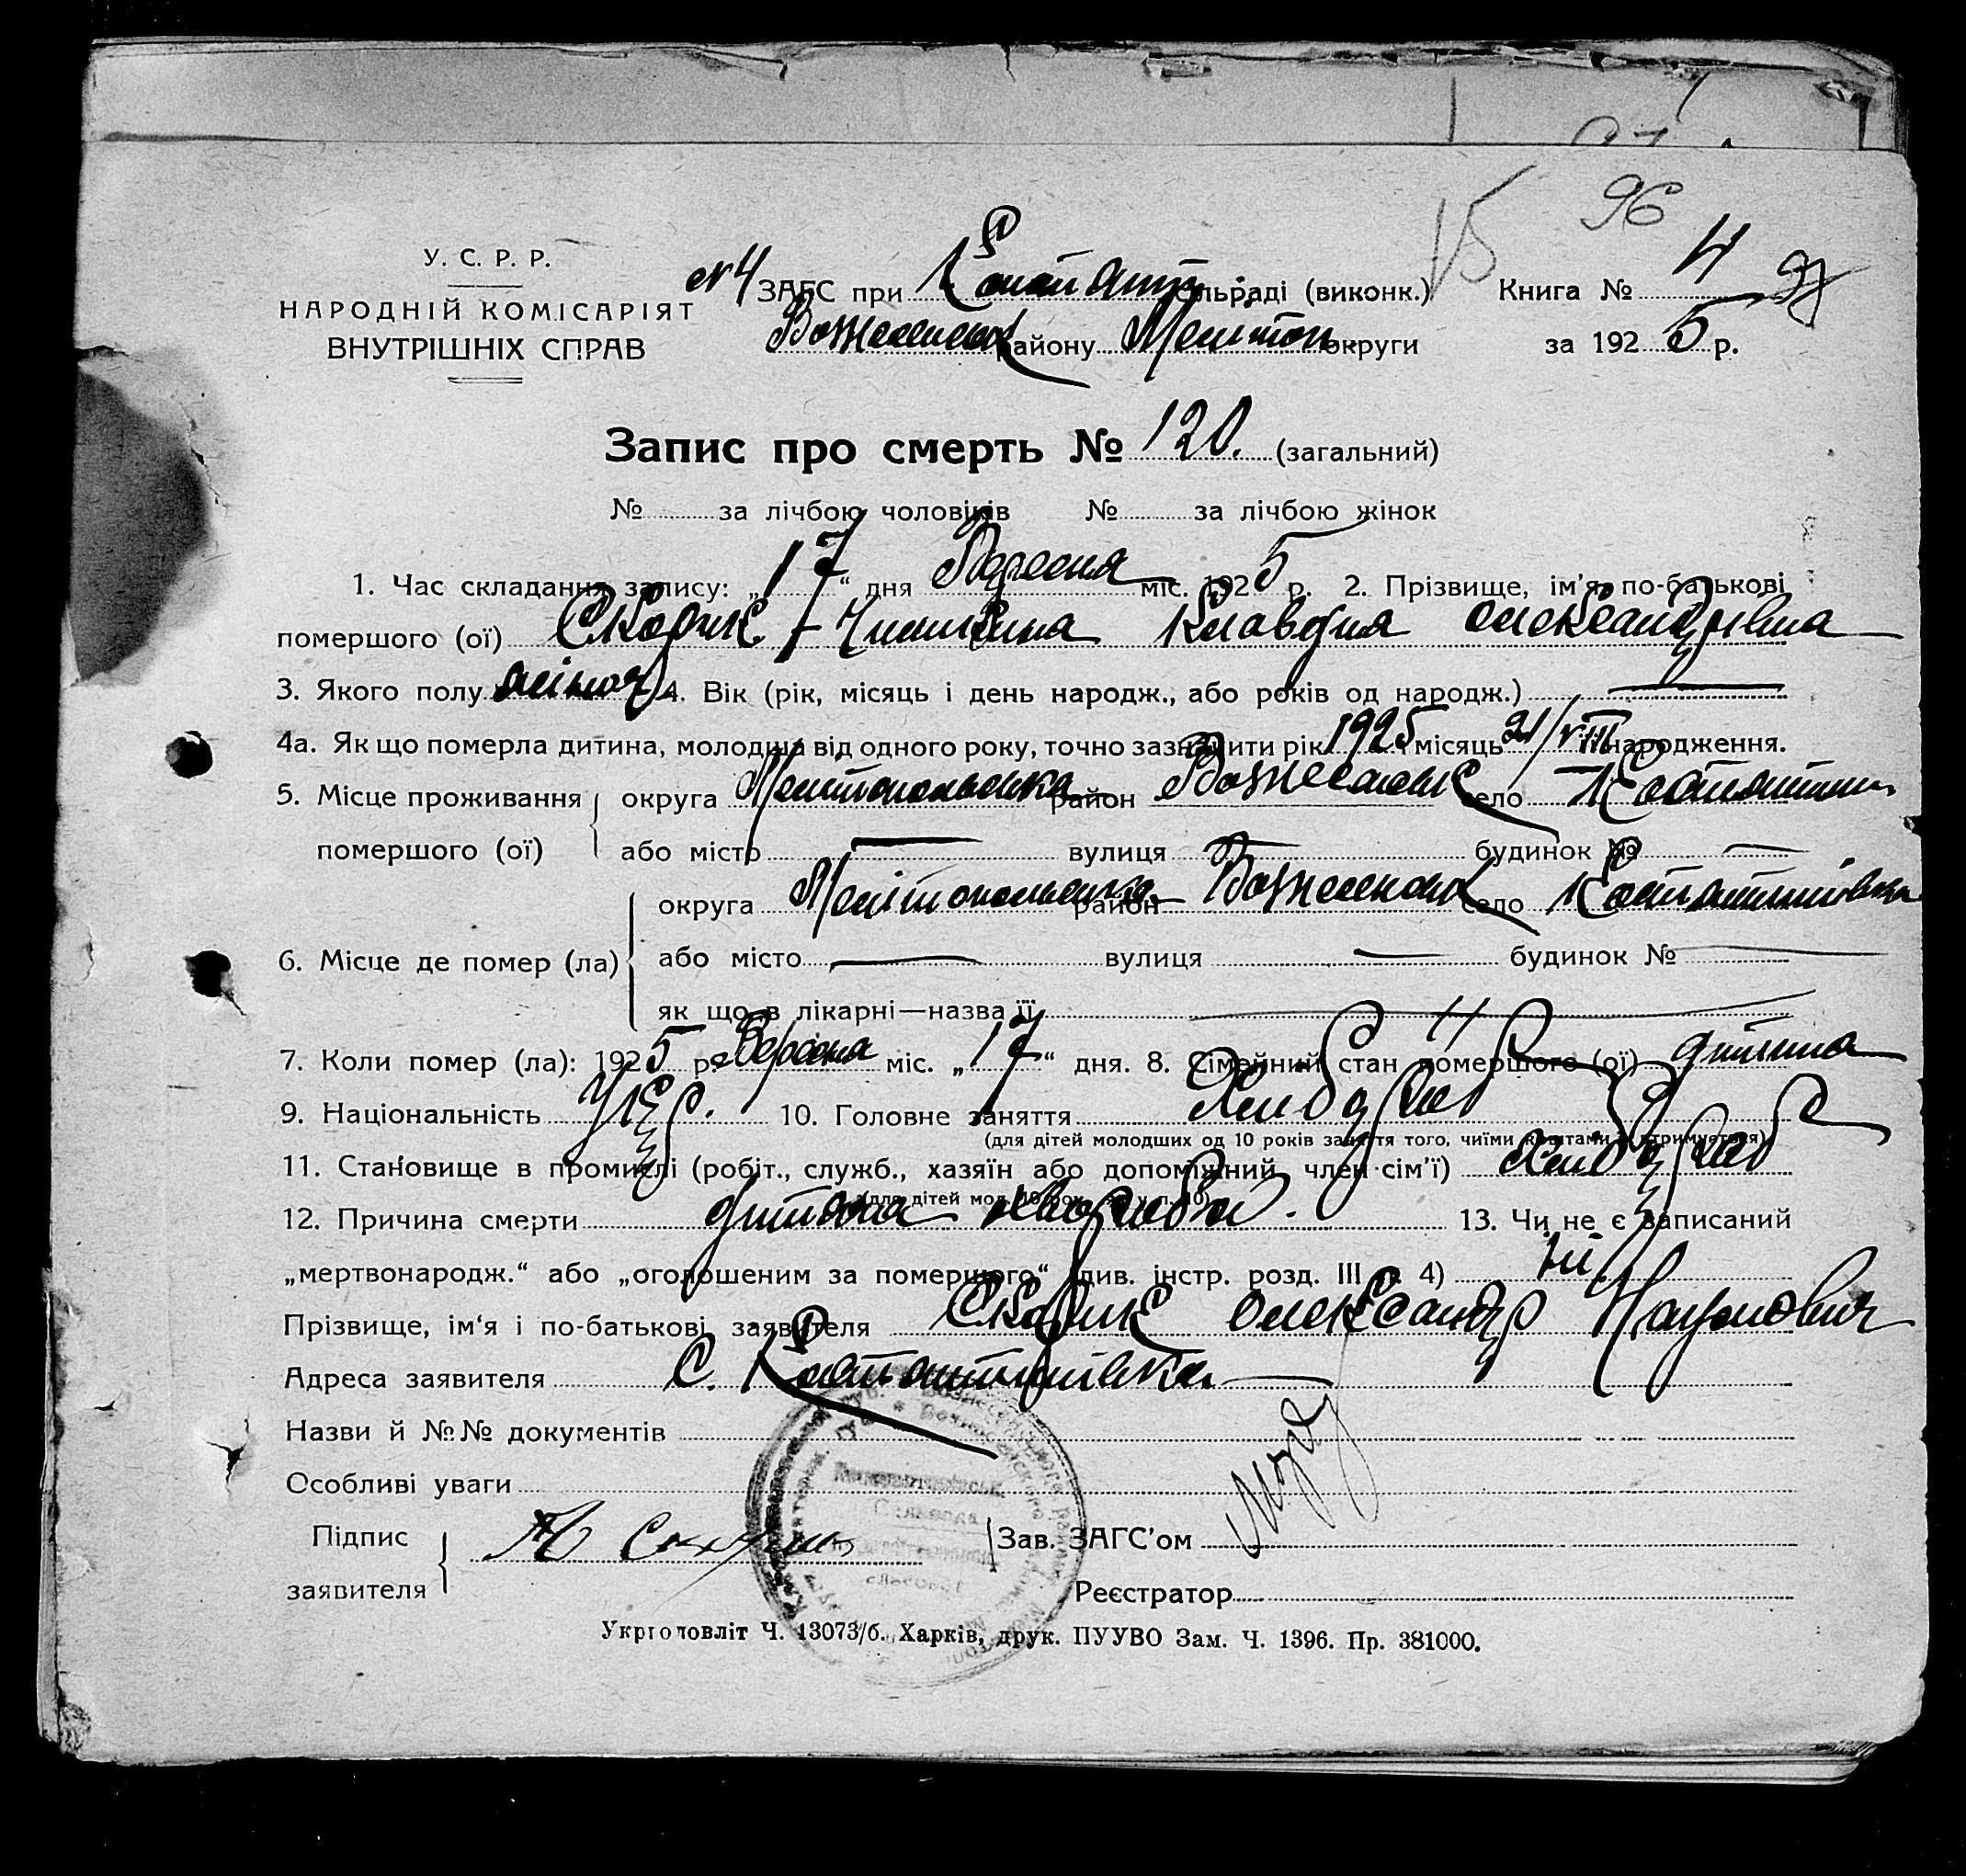 15 96
У. С. Р. Р.
НАРОДНІЙ КОМІСАРІЯТ
ВНУТРІШНІХ СПРАВ
№4 ЗАГС при Констант. сільраді (виконк.) Книга № 4 97
Вознесенськ району Мелітоп. округи за 1925 р.
Запис про смерть № 120. (загальний)
№ за лічбою чоловіків № за лічбою жінок
1. Час складання запису: „17“ дня Вересня міс. 1925 р. 2. Прізвище, ім'я, по-батькові
помершого (ої) Скорик Клавдія Олександрівна
3. Якого полу жіноч. 4. Вік (рік, місяць і день народж., або років од народж.) —
4а. Як що померла дитина, молодша від одного року, точно зазначити рік 1925 і місяць 21/VIII народження.
5. Місце проживання округа Мелітопольська район Вознесенськ село Костянтин
помершого (ої) або місто — вулиця — будинок № —
округа Мелітопольська район Вознесенськ село Костянтинівка
6. Місце де помер (ла) або місто — вулиця — будинок № —
як що в лікарні—назва її —
7. Коли помер (ла): 1925 р. Вересня міс. „17“ дня. 8. Сімейний стан помершого (ої) дитина
9. Національність Укр. 10. Головне заняття Хлібороб
(для дітей молодших од 10 років заняття того, чиїми коштами утримується)
11. Становище в промислі (робіт., служб., хазяїн або допоміжний член сім'ї) Хлібороб
(для дітей мол. 10 рок. як у п. 10)
12. Причина смерти дитяча хвороба. 13. Чи не є записаний
„мертвонародж.“ або „оголошеним за помершого“ (див. інстр. розд. III п. 4) ні
Прізвище, ім'я і по-батькові заявителя Скорик Олександр Наумович
Адреса заявителя С. Костянтинівка
Назви й №№ документів
Особливі уваги
Підпис
заявителя
Зав. ЗАГС'ом
Реєстратор
Укрголовліт Ч. 13073/б. Харків, друк. ПУУВО Зам. Ч. 1396. Пр. 381000.